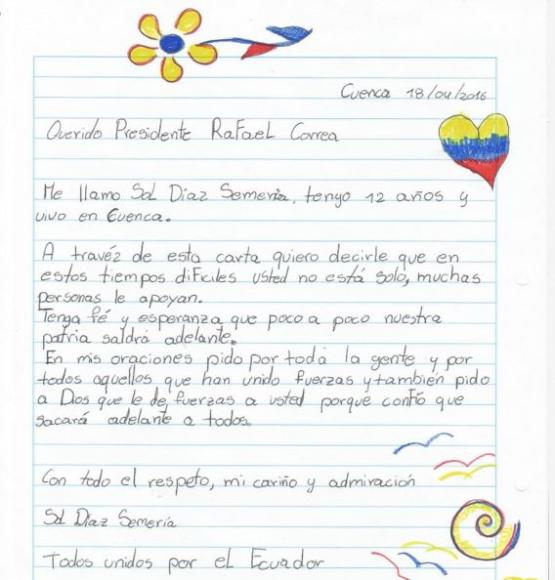 Cuenca 18/04/2016
Querido Presidente Rafael Correa
Me llamo Sol Diaz Semería, tengo 12 años y
vivo en Cuenca.
A travéz de esta carta quiero decirle que en
estos tiempos difíciles usted no está solo, muchas
personas le apoyan.
Tenga fé y esperanza que poco a poco nuestra
patria saldrá adelante.
En mis oraciones pido por toda la gente y por
todos aquellos que han unido fuerzas y también pido
a Dios que le de fuerzas a usted porque confío que
sacará adelante a todos
Con todo el respeto, mi cariño y admiración
Sol Diaz Semería
Todos unidos por el Ecuador